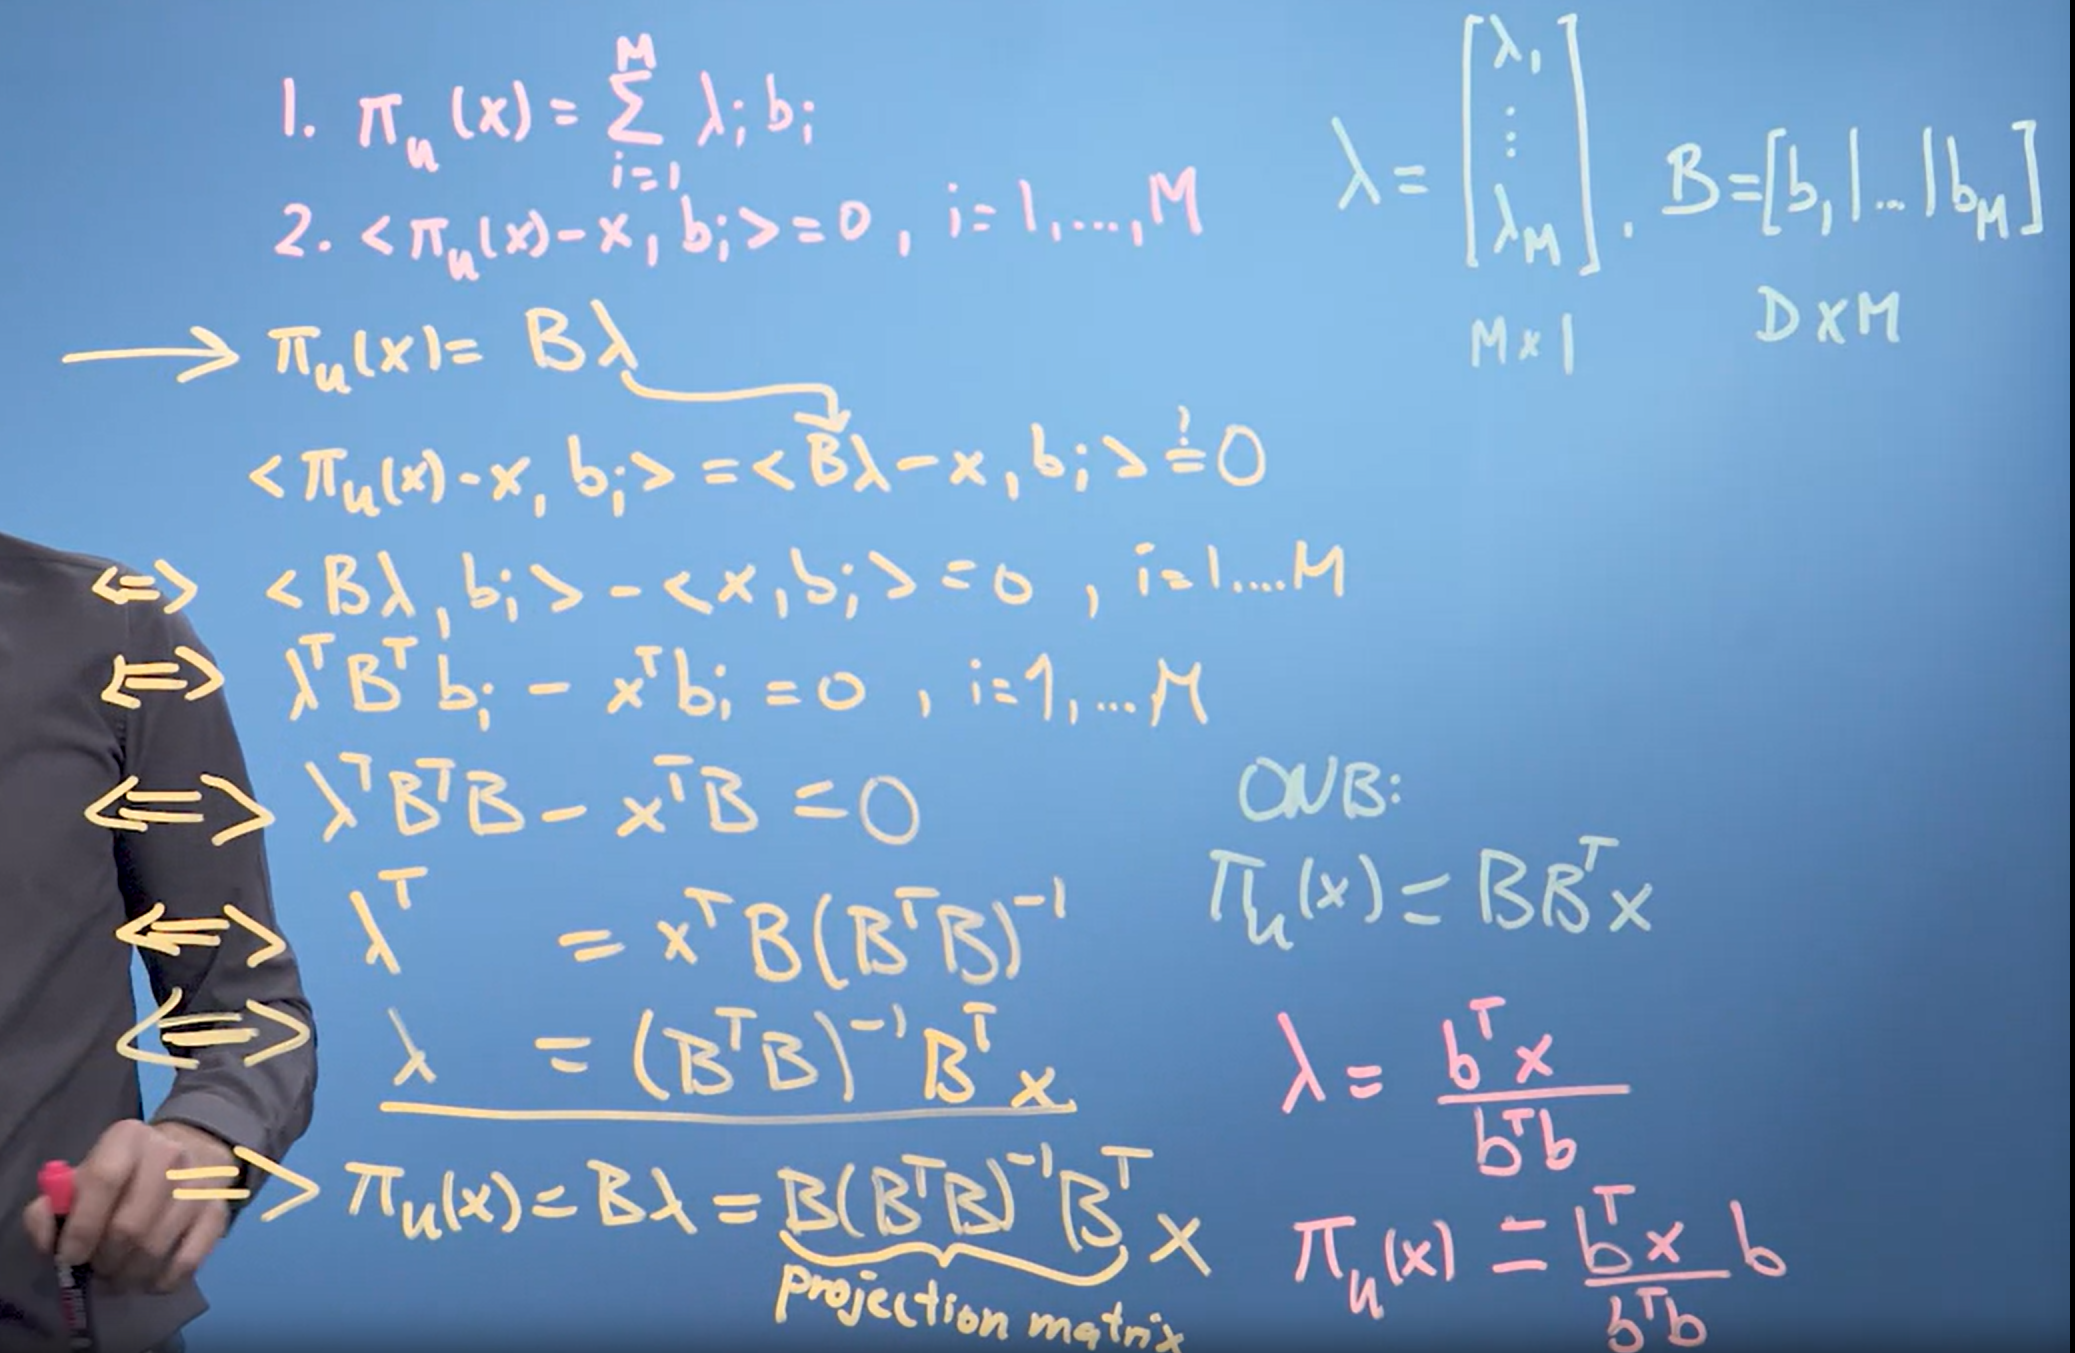 1. π_u(x) = Σ_{i=1}^{M} λ_i b_i
2. <π_u(x) - x, b_i> = 0, i = 1, ..., M
λ = [λ_1 ⋮ λ_M], B = [b_1|...|b_M]
M×1 D×M
→ π_u(x) = Bλ
<π_u(x) - x, b_i> = <Bλ - x, b_i> =^! 0
<=> <Bλ, b_i> - <x, b_i> = 0, i = 1....M
<=> λ^T B^T b_i - x^T b_i = 0, i = 1, ...M
<=> λ^T B^T B - x^T B = 0
<=> λ^T = x^T B(B^T B)^{-1}
<=> λ = (B^T B)^{-1} B^T x
=> π_u(x) = Bλ = B(B^T B)^{-1} B^T x
projection matrix
ONB:
π_u(x) = BB^T x
λ = b^T x / b^T b
π_u(x) = b^T x / b^T b b